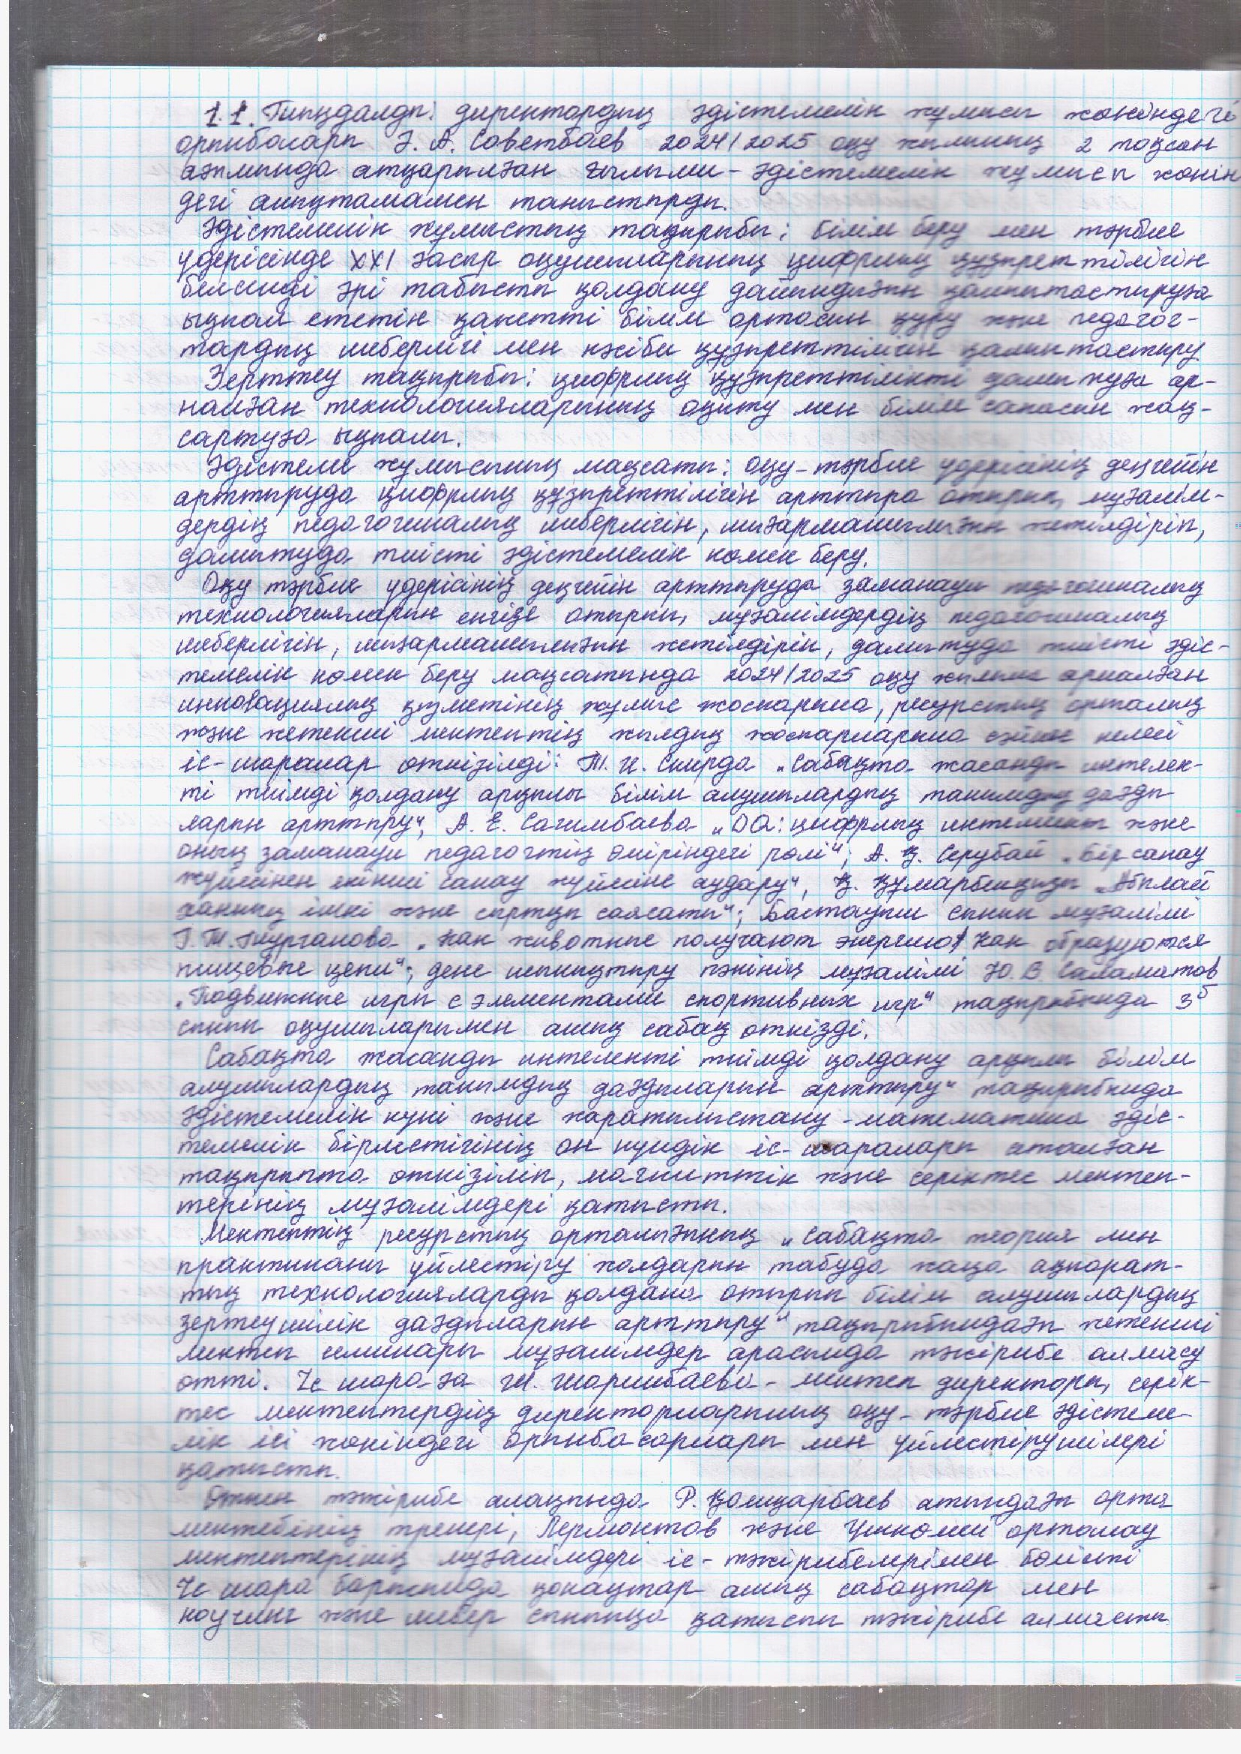 1.1. Тыңдалды: директордың әдістемелік жұмысы жөніндегі
орынбасары Э. А. Советбаев 2024/2025 оқу жылының 2 тоқсан
аязмында атқарылған ғылыми-әдістемелік жұмысы жөнін
дегі анықтамамен таныстырды.
Әдістемелік жұмыстың тақырыбы: білім беру мен тәрбие
үдерісінде XXI ғасыр оқушыларының цифрлық құзіреттілігін
белсенді әрі табысты қолдану дайындығын қалыптастыруға
ықпал ететін қажетті білім ортасын құру және педагог-
тардың шеберлігі мен кәсіби құзіреттілігін қалыптастыру
Зерттеу тақырыбы: цифрлық құзіреттілікті дамытуға ар-
налған технологияларының оқыту мен білім сапасын жақ-
сартуға ықпалы.
Әдістеме жұмысының мақсаты: оқу-тәрбие үдерісінің деңгейін
арттыруда цифрлық құзіреттілігін арттыра отырып, мұғалім-
дердің педагогикалық шеберлігін, шығармашылығын жетілдіріп,
дамытуда тиісті әдістемелік көмек беру.
Оқу тәрбие үдерісінің деңгейін арттыруда заманауи педагогикалық
технологияларын енгізе отырып, мұғалімдердің педагогикалық
шеберлігін, шығармашылығын жетілдіріп, дамытуда тиісті әдіс-
темелік көмек беру мақсатында 2024/2025 оқу жылына арналған
инновациялық қызметінің жұмыс жоспарына, ресурстық орталық
және жетекші мектептің жылдық жоспарларына сәйкес келесі
іс-шаралар өткізілді: Т. И. Скирда „Сабақта жасанды интелек-
ті тиімді қолдану арқылы білім алушылардың танымдық дағды
ларын арттыру“, А. Е. Сагимбаева „DQ: цифрлық интеллект және
оның заманауи педагогтің өміріндегі рөлі“; А. Қ. Серубай „Бір санау
жүйесінен екінші санау жүйесіне аудару“, Қ. Құмарбекқызы „Абылай
ханның ішкі және сыртқы саясаты“; Бастауыш сынып мұғалімі
Г. Т. Нурганова „Как животные получают энергию? Как образуются
пищевые цепи“; дене шынықтыру пәнінің мұғалімі Ю. В Саламатов
„Подвижные игры с элементами спортивных игр“ тақырыбында 3б
сынып оқушыларымен ашық сабақ өткізді.
Сабақта жасанды интелекті тиімді қолдану арқылы білім
алушылардың танымдық дағдыларын арттыру“ тақырыбында
әдістемелік күні және жаратылыстану-математика әдіс-
темелік бірлестігінің он күндік іс-шаралары аталған
тақырыпта өткізіліп, магниттік және серіктес мектеп-
терінің мұғалімдері қатысты.
Мектептің ресурстық орталығының „Сабақта теория мен
практиканы үйлестіру жолдарын табуда жаңа ақпарат-
тық технологияларды қолдана отырып білім алушылардың
зерттеушілік дағдыларын арттыру“ тақырыбындағы жетекші
мектеп семинары мұғалімдер арасында тәжірибе алмасу
өтті. Іс шараға Ш. Шаринбаева - мектеп директоры, серік-
тес мектептердің директорларының оқу-тәрбие әдістеме-
лік ісі жөніндегі орынбасарлары мен үйлестірушілері
қатысты.
Өткен тәжірибе алаңында Р. Қошқарбаев атындағы орта
мектебінің тренері, Лермонтов және Үшкөлі орталау
мектептерінің мұғалімдері іс-тәжірибелерімен бөлісті
Іс шара барысында қонақтар ашық сабақтар мен
коучинг және шебер сыныпқа қатысып тәжірибе алмасты